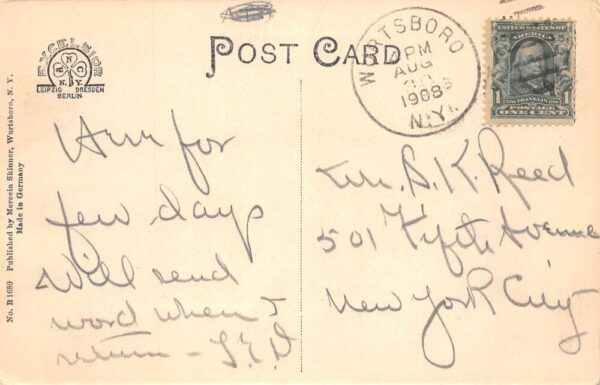 POST CARD
EXCELSIOR
N.Y.
LEIPZIG DRESDEN
BERLIN
WURTSBORO
PM
AUG
1908
N.Y.
UNITED STATES OF
AMERICA
1 FRANKLIN 1
POSTAGE
ONE CENT
No. B 1689 Published by Mercein Skinner, Wurtsboro, N. Y.
Made in Germany
Here for
few days
Will send
word when I
return -
Mr. S. K. Reed
501 Fifth Avenue
New York City